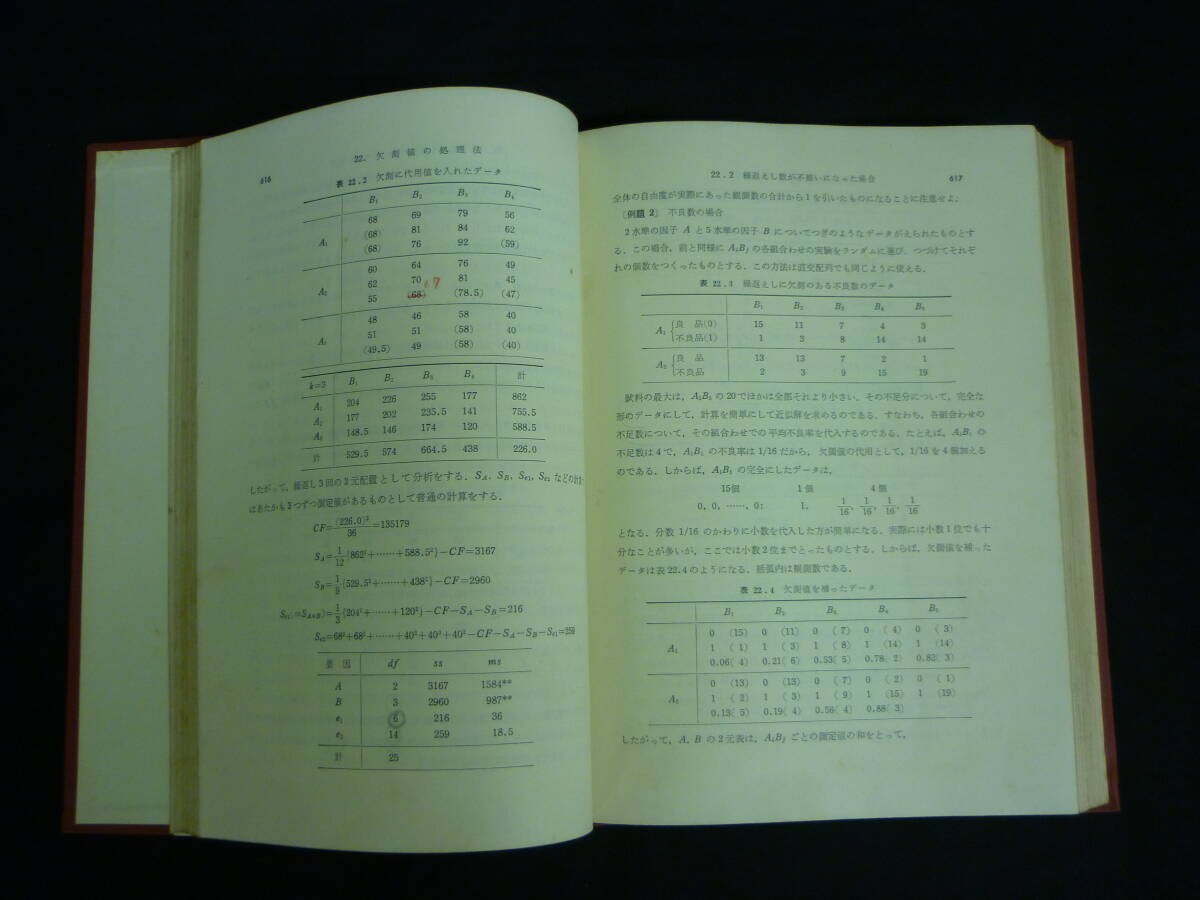 616
22. 欠測値の処理法
表 22.2 欠測に代用値を入れたデータ
B₁ B₂ B₃ B₄
68 69 79 56
A₁ (68) 81 84 62
(68) 76 92 (59)
60 64 76 49
A₂ 62 70 81 45
55 (68) 67 (78.5) (47)
48 46 58 40
A₃ 51 51 (58) 40
(49.5) 49 (58) (40)
k=3 B₁ B₂ B₃ B₄ 計
A₁ 204 226 255 177 862
A₂ 177 202 235.5 141 755.5
A₃ 148.5 146 174 120 588.5
計 529.5 574 664.5 438 226.0
したがって，繰返し3回の2元配置として分析をする．S_A，S_B，S_e1，S_e2 などの計算
はあたかも3つずつ測定値があるものとして普通の計算をする．
CF=(226.0)²/36=135179
S_A=1/12{862²+……+588.5²}-CF=3167
S_B=1/9{529.5²+……+438²}-CF=2960
S_e1(=S_A×B)=1/3{204²+……+120²}-CF-S_A-S_B=216
S_e2=68²+68²+……+40²+40²+40²-CF-S_A-S_B-S_e1=259
要因 df ss ms
A 2 3167 1584**
B 3 2960 987**
e₁ 6 216 36
e₂ 14 259 18.5
計 25
22.2 繰返えし数が不揃いになった場合 617
全体の自由度が実際にあった観測数の合計から1を引いたものになることに注意せよ．
〔例題 2〕 不良数の場合
2水準の因子 A と5水準の因子 B についてつぎのようなデータがえられたものとす
る．この場合，前と同様に AᵢBⱼ の各組合わせの実験をランダムに選び，つづけてそれぞ
れの個数をつくったものとする．この方法は直交配列でも同じように使える．
表 22.3 繰返えしに欠測のある不良数のデータ
B₁ B₂ B₃ B₄ B₅
A₁ { 良 品(0) 15 11 7 4 3
不良品(1) 1 3 8 14 14
A₂ { 良 品 13 13 7 2 1
不良品 2 3 9 15 19
試料の最大は，A₂B₅ の20でほかは全部それより小さい．その不足分について，完全な
形のデータにして，計算を簡単にして近似解を求めるのである．すなわち，各組合わせの
不足数について，その組合わせでの平均不良率を代入するのである．たとえば，A₁B₁ の
不足数は4で，A₁B₁ の不良率は1/16だから，欠測値の代用として，1/16を4個加える
のである．しからば，A₁B₁ の完全にしたデータは，
15個 1個 4個
0, 0, ……, 0; 1, 1/16, 1/16, 1/16, 1/16
となる．分数 1/16 のかわりに小数を代入した方が簡単になる．実際には小数1位でも十
分なことが多いが，ここでは小数2位までとったものとする．しからば，欠測値を補った
データは表22.4のようになる．括弧内は観測数である．
表 22.4 欠測値を補ったデータ
B₁ B₂ B₃ B₄ B₅
0 (15) 0 (11) 0 ( 7) 0 ( 4) 0 ( 3)
A₁ 1 ( 1) 1 ( 3) 1 ( 8) 1 (14) 1 (14)
0.06( 4) 0.21( 6) 0.53( 5) 0.78( 2) 0.82( 3)
0 (13) 0 (13) 0 ( 7) 0 ( 2) 0 ( 1)
A₂ 1 ( 2) 1 ( 3) 1 ( 9) 1 (15) 1 (19)
0.13( 5) 0.19( 4) 0.56( 4) 0.88( 3)
したがって，A，B の2元表は，AᵢBⱼ ごとの測定値の和をとって，